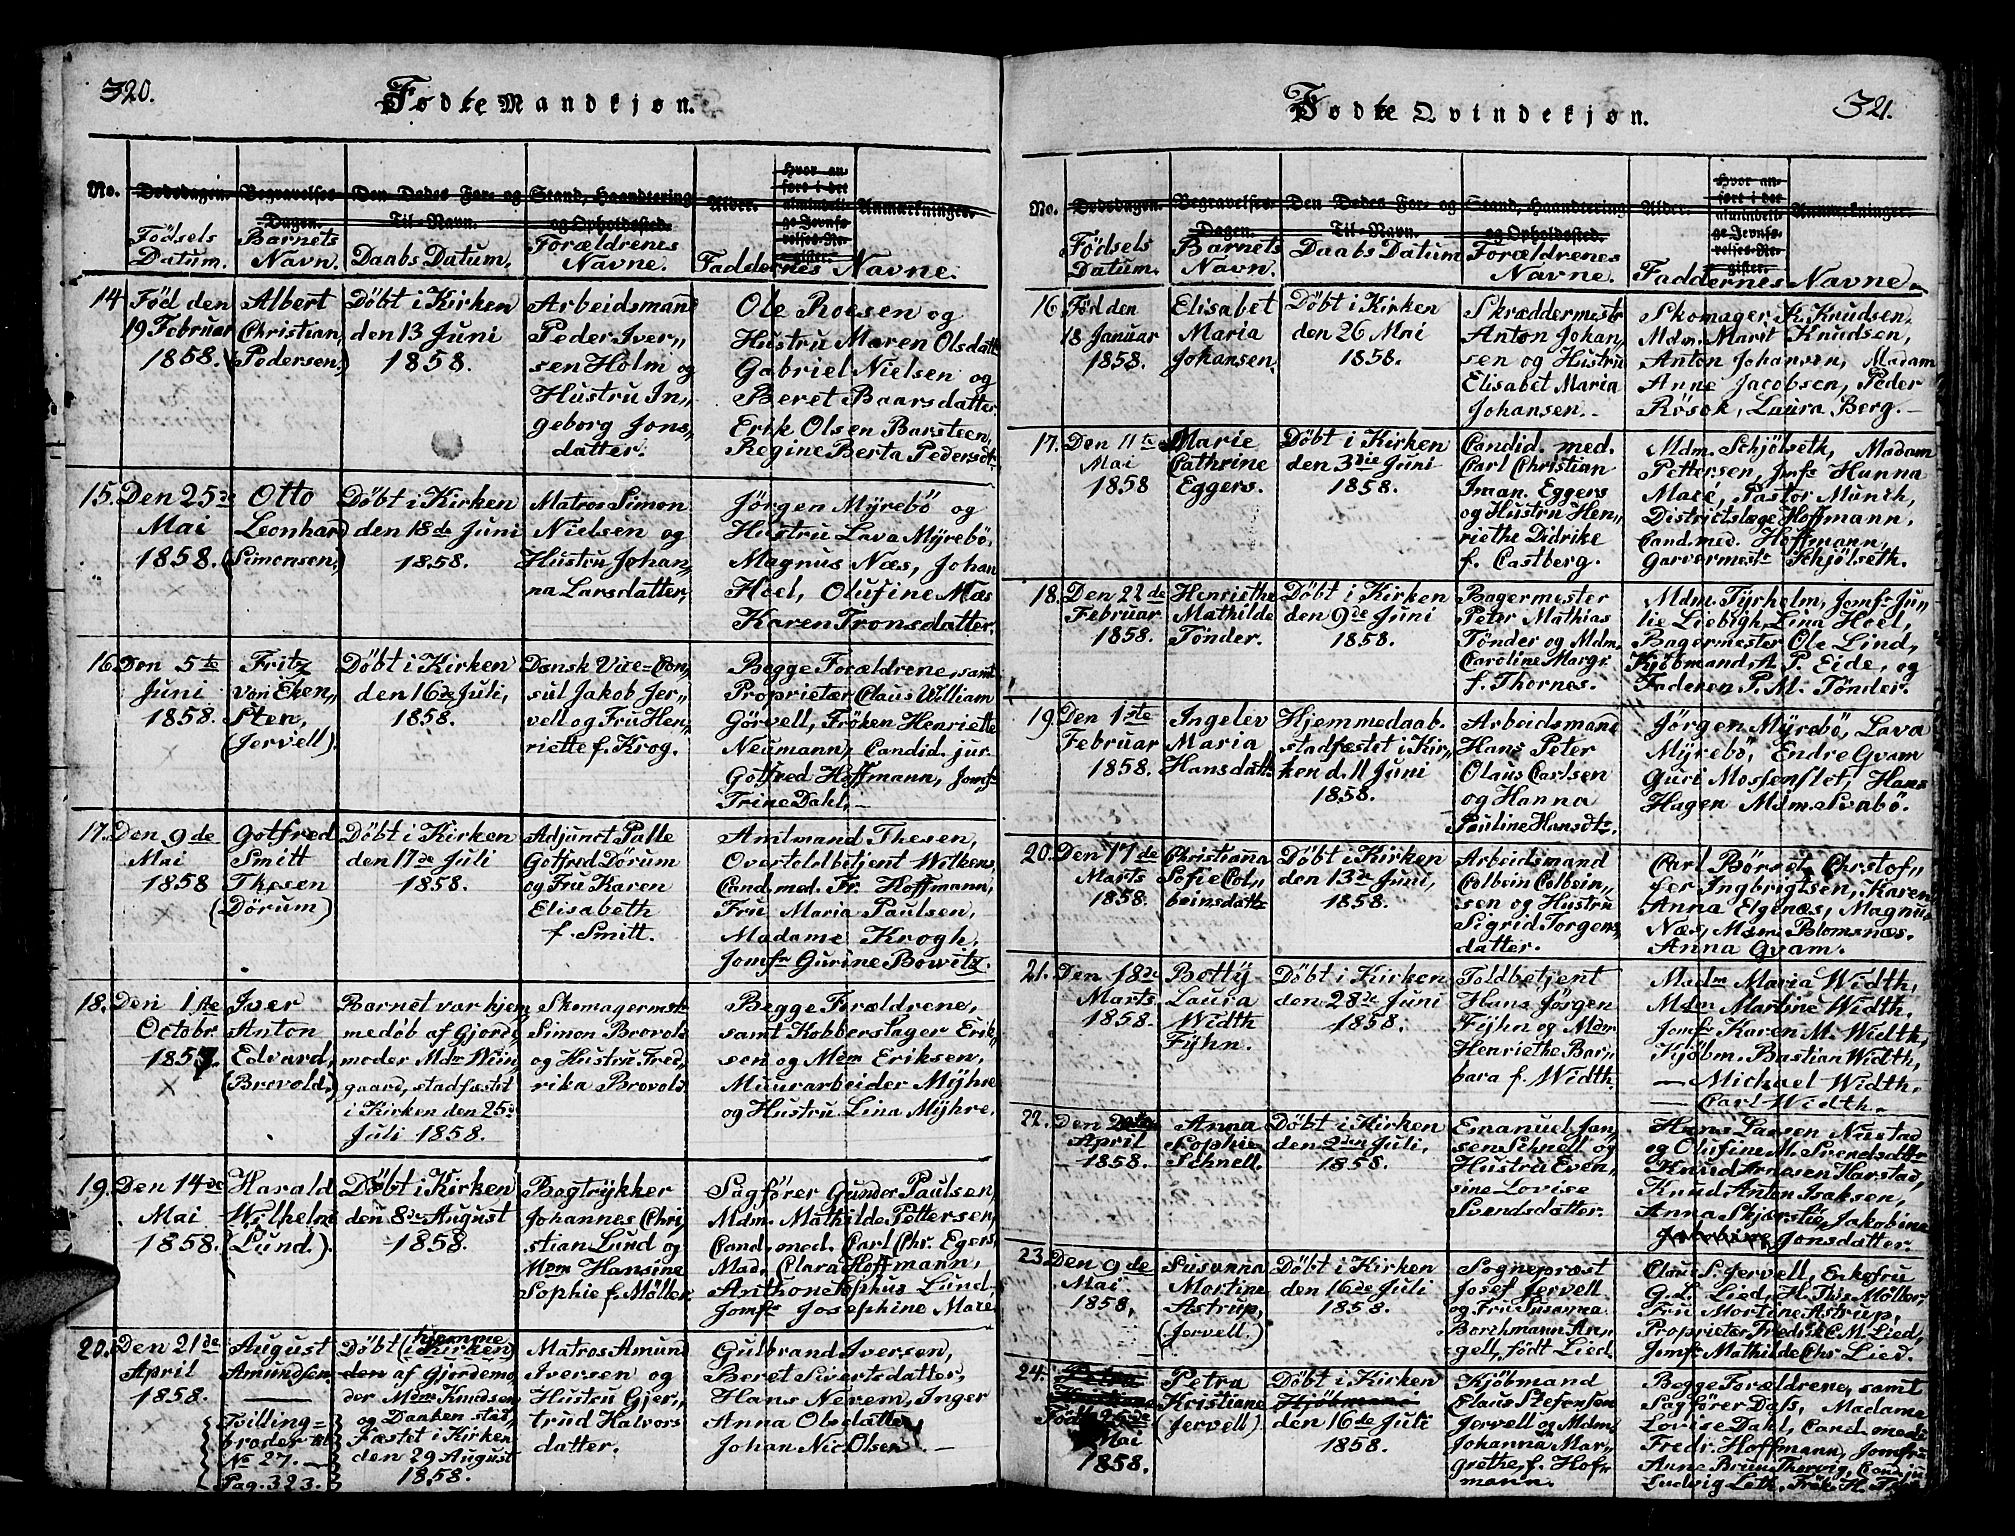 320.
Fødte Mandkjøn.
No.
Dødsdagen.
Begravelses Dagen.
Den Dødes For= og Til=Navn.
Stand, Haandtering og Opholdssted.
Alder.
Hvor anført i det almindelige Jevnførelses=Register.
Anmærkninger.
Fødsels Datum.
Barnets Navn.
Daabs Datum.
Forældrenes Navne.
Faddernes Navne.
14
Fød den
19 Februar
1858.
Albert
Christian,
(Pedersen,)
Døbt i Kirken
den 13 Juni
1858.
Arbeidsmand
Peder Iver„
sen Holm og
Hustru In„
geborg Jons„
datter.
Ole Roesen og
Hustru Maren Olsdatt
Gabriel Nielsen og
Beret Baarsdatter,
Erik Olsen Barsteen,
Regine Berta Pedersdtr
15.
Den 25de
Mai
1858.
Otto
Leonhard
(Simonsen,)
Døbt i Kirken
den 18de Juni
1858.
Matros Simon
Nielsen og
Hustru Johan„
na Larsdatter,
Jörgen Myrebö og
Hustru Lava Myrebö,
Magnus Næs, Johan
Hoel, Olufine Næs
Karen Tronsdatter.
16
Den 5te
Juni
1858.
Fritz
von Eken„
Sten,
(Jervell).
Døbt i Kirken
den 16de Juli,
1858.
Dansk Vice=Con„
sul Jakob Jer„
vell og Fru Hen„
riette f. Krog.
Begge Forældrene, samt
Proprietær Claus William
Görvell, Fröken Henriette
Neumann, Candid. jur.
Gotfred Hoffmann, Jomfr
Trine Dahl,—
17.
Den 9de
Mai
1858
Gotfred
Smitt
Thesen
(Dörum)
Døbt i Kirken
den 17de Juli
1858.
Adjunct Palle
Gotfred Dörum
og Fru Karen
Elisabeth
f. Smitt.
Amtmand Thesen,
Overtoldbetjent Wilkens,
Cand. med. Fr. Hoffmann,
Fru Maria Paulsen,
Madame Krogh,
Jomfr Gurine Bowitz.
18.
Den 1ste
Octobr.
1857.
Iver
Anton
Edvard,
(Brevold,)
Barnet var hjem
medöb af Gjorde
moder Mdm Win
gaard, stadfæstet
i Kirken den 25de
Juli 1858.
Skomagermst
Simon Brovold
og Hustru Fred„
rika Brovold
Begge Forældrene,
samt Kobberslager Erik„
sen og Mdm Eriksen,
Muurarbeider Myhre
og Hustru Lina Myhre,
19.
Den 14de
Mai
1858.
Harald
Wilhelm
(Lund.)
Døbt i Kirken
den 8de August
1858.
Bogtrykker
Johannes Chri„
stian Lund og
Mdm Hansine
Sophie f. Möller
Sagförer Gunder Paulsen,
Mdm. Mathilde Pettersen,
Cand. med. Carl Chr. Egers
Mad. Clara Hoffmann,
Anthon Sophus Lund.
Jomfr Josephine Mare
20.
Den 21de
April
1858.
August
Amundsen,
Tvilling=
broder til
No 27.—
Pag. 323.
Døbt (i Kirken) hjemme
den af Gjordemo„
der Mdm Knudsen
og Daaben stad„
fæstet i Kirken
den 29 August
1858.
Matros Amund
Iversen og
Hustru Gjer„
trud Halvors„
datter.
Gulbrand Iversen,
Beret Sivertsdatter,
Hans Nerem, Inger
Anna Olsdatter,
Johan Nic. Olsen —
321.
Fødte Qvindekjøn.
No.
Dødsdagen.
Begravelses Dagen.
Den Dødes For= og Til=Navn.
Stand, Haandtering og Opholdssted.
Alder.
Hvor anført i det almindelige Jevnførelses=Register.
Anmærkninger.
Fødsels Datum.
Barnets Navn.
Daabs Datum
Forældrenes Navne.
Faddernes Navne.
16
Fød den
18 Januar
1858.
Elisabet
Maria
Johansen,
Døbt i Kirken
den 26 Mai
1858.
Skræddermestr
Anton Johan„
sen og Hustru
Elisabet Maria
Johansen.—
Skomager K. Knudsen,
Mdm. Marit Knudsen,
Anton Johansen, Madam
Anne Jacobsen, Peder
Rösok, Laura Berg.—
17.
Den 11te
Mai
1858
Marie
Cathrine
Eggers.
Døbt i Kirken
den 3die Juni
1858.
Candid. med.
Carl Christian
Iman. Eggers
og Hustru Hen„
riethe Didrike
f. Castberg.
Mdm. Schjölseth, Madam
Pettersen, Jmfr Hanna
Maré, Pastor Münch,
Districtslæge Hoffmann,
Cand. med. Hoffmann,
Garvermestr Schjölseth.
18.
Den 22de
Februar
1858.
Henriethe
Mathilde
Tönder.
Døbt i Kirken
den 9de Juni
1858.
Bagermester
Peter Mathias
Tönder og Mdm.
Caroline Margr.
f. Thornes.
Mdm. Tyrholm, Jomfr Ju„
lie Liebigh, Lina Hoel,
Bagermester Ole Lind,
Kjöbmand A. P. Eide, og
Faderen P. M. Tönder.
19.
Den 1ste
Februar
1858.
Ingelev
Maria
Hansdatt
Hjemmedaab.
stadfæstet i Kir„
ken d. 11 Juni
1858.
Arbeidsmand
Hans Peter
Olaus Carlsen
og Hanna
Pauline Hansdtr.
Jörgen Myrebö, Lava
Myrebö, Endre Qvam
Guri Mossenslet, Hans
Hagen Mdm. Svabö.
20.
Den 17de
Marts
1858.
Christianna
Sofie Col„
beinsdatter
Døbt i Kirken
den 13de Juni,
1858.
Arbeidsmand
Colbein Colbein„
sen og Hustru
Sigrid Torgers„
datter.
Carl Börset, Chrstof„
fer Ingbrigtsen, Karen
Anna Elgenæs, Magnu
Næs, Mdm. Blomsnæs.
Anna Qvam.
21.
Den 18de
Marts
1858.
Botty
Laura
Width
Fyhn.
Døbt i Kirken
den 28de Juni
1858.
Toldbetjent
Hans Jörgen
Fyhn og Mdm
Henriethe Bar„
bara f. Width
Madm Maria Width,
Mdm Martine Width,
Jomfr Karen M. Width,
Kjöbm. Bastian Width,
— Michael Width,
— Carl Width.
22.
Den 20de
April
1858.
Anna
Sophie
Schnell.
Døbt i Kirken
den 2den Juli,
1858.
Emanuel Jan„
sen Schnell og
Hustru Even„
sine Lovise
Svendsdatter.
Hans Larsen Nustad
og Olufine M. Svendsdatter
Knud Arnesen Harstad,
Knud Anton Isaksen,
Anna Skjærslie, Jakobine
Jonsdatter.
23.
Den 9de
Mai
1858,
Susanna
Mortine
Astrup,
(Jervell.)
Døbt i Kirken
den 16de Juli
1858.
Sognepræst
Josef Jervell
og Fru Susanna
Borchmann An„
gell, født Lied.
Claus S. Jervell, Enkefru
G. L. Lied, H. Ths. Möller,
Fru Mortine Astrup,
Proprietær Fredrik C. M. Lied,
Jomfr Mathilde Chr Lied.
24.
Petra
Født 26de
Mai
1858.
Petra
Kristiane
(Jervell).
Døbt i Kirken
Kjöbmand
den 16de Juli
1858.
Kjöbmand
Claus Stefenson
Jervell og Mdm.
Johanna Mar„
grethe, f. Hof„
mann.
Begge Forældrene, samt
Sagförer Dass, Madame
Lovise Dahl, Cand. med.
Fredr. Hoffmann, Jomfru
Anne Brun Thoring, Cand. ju
Ludvig Leth, Frök. H.